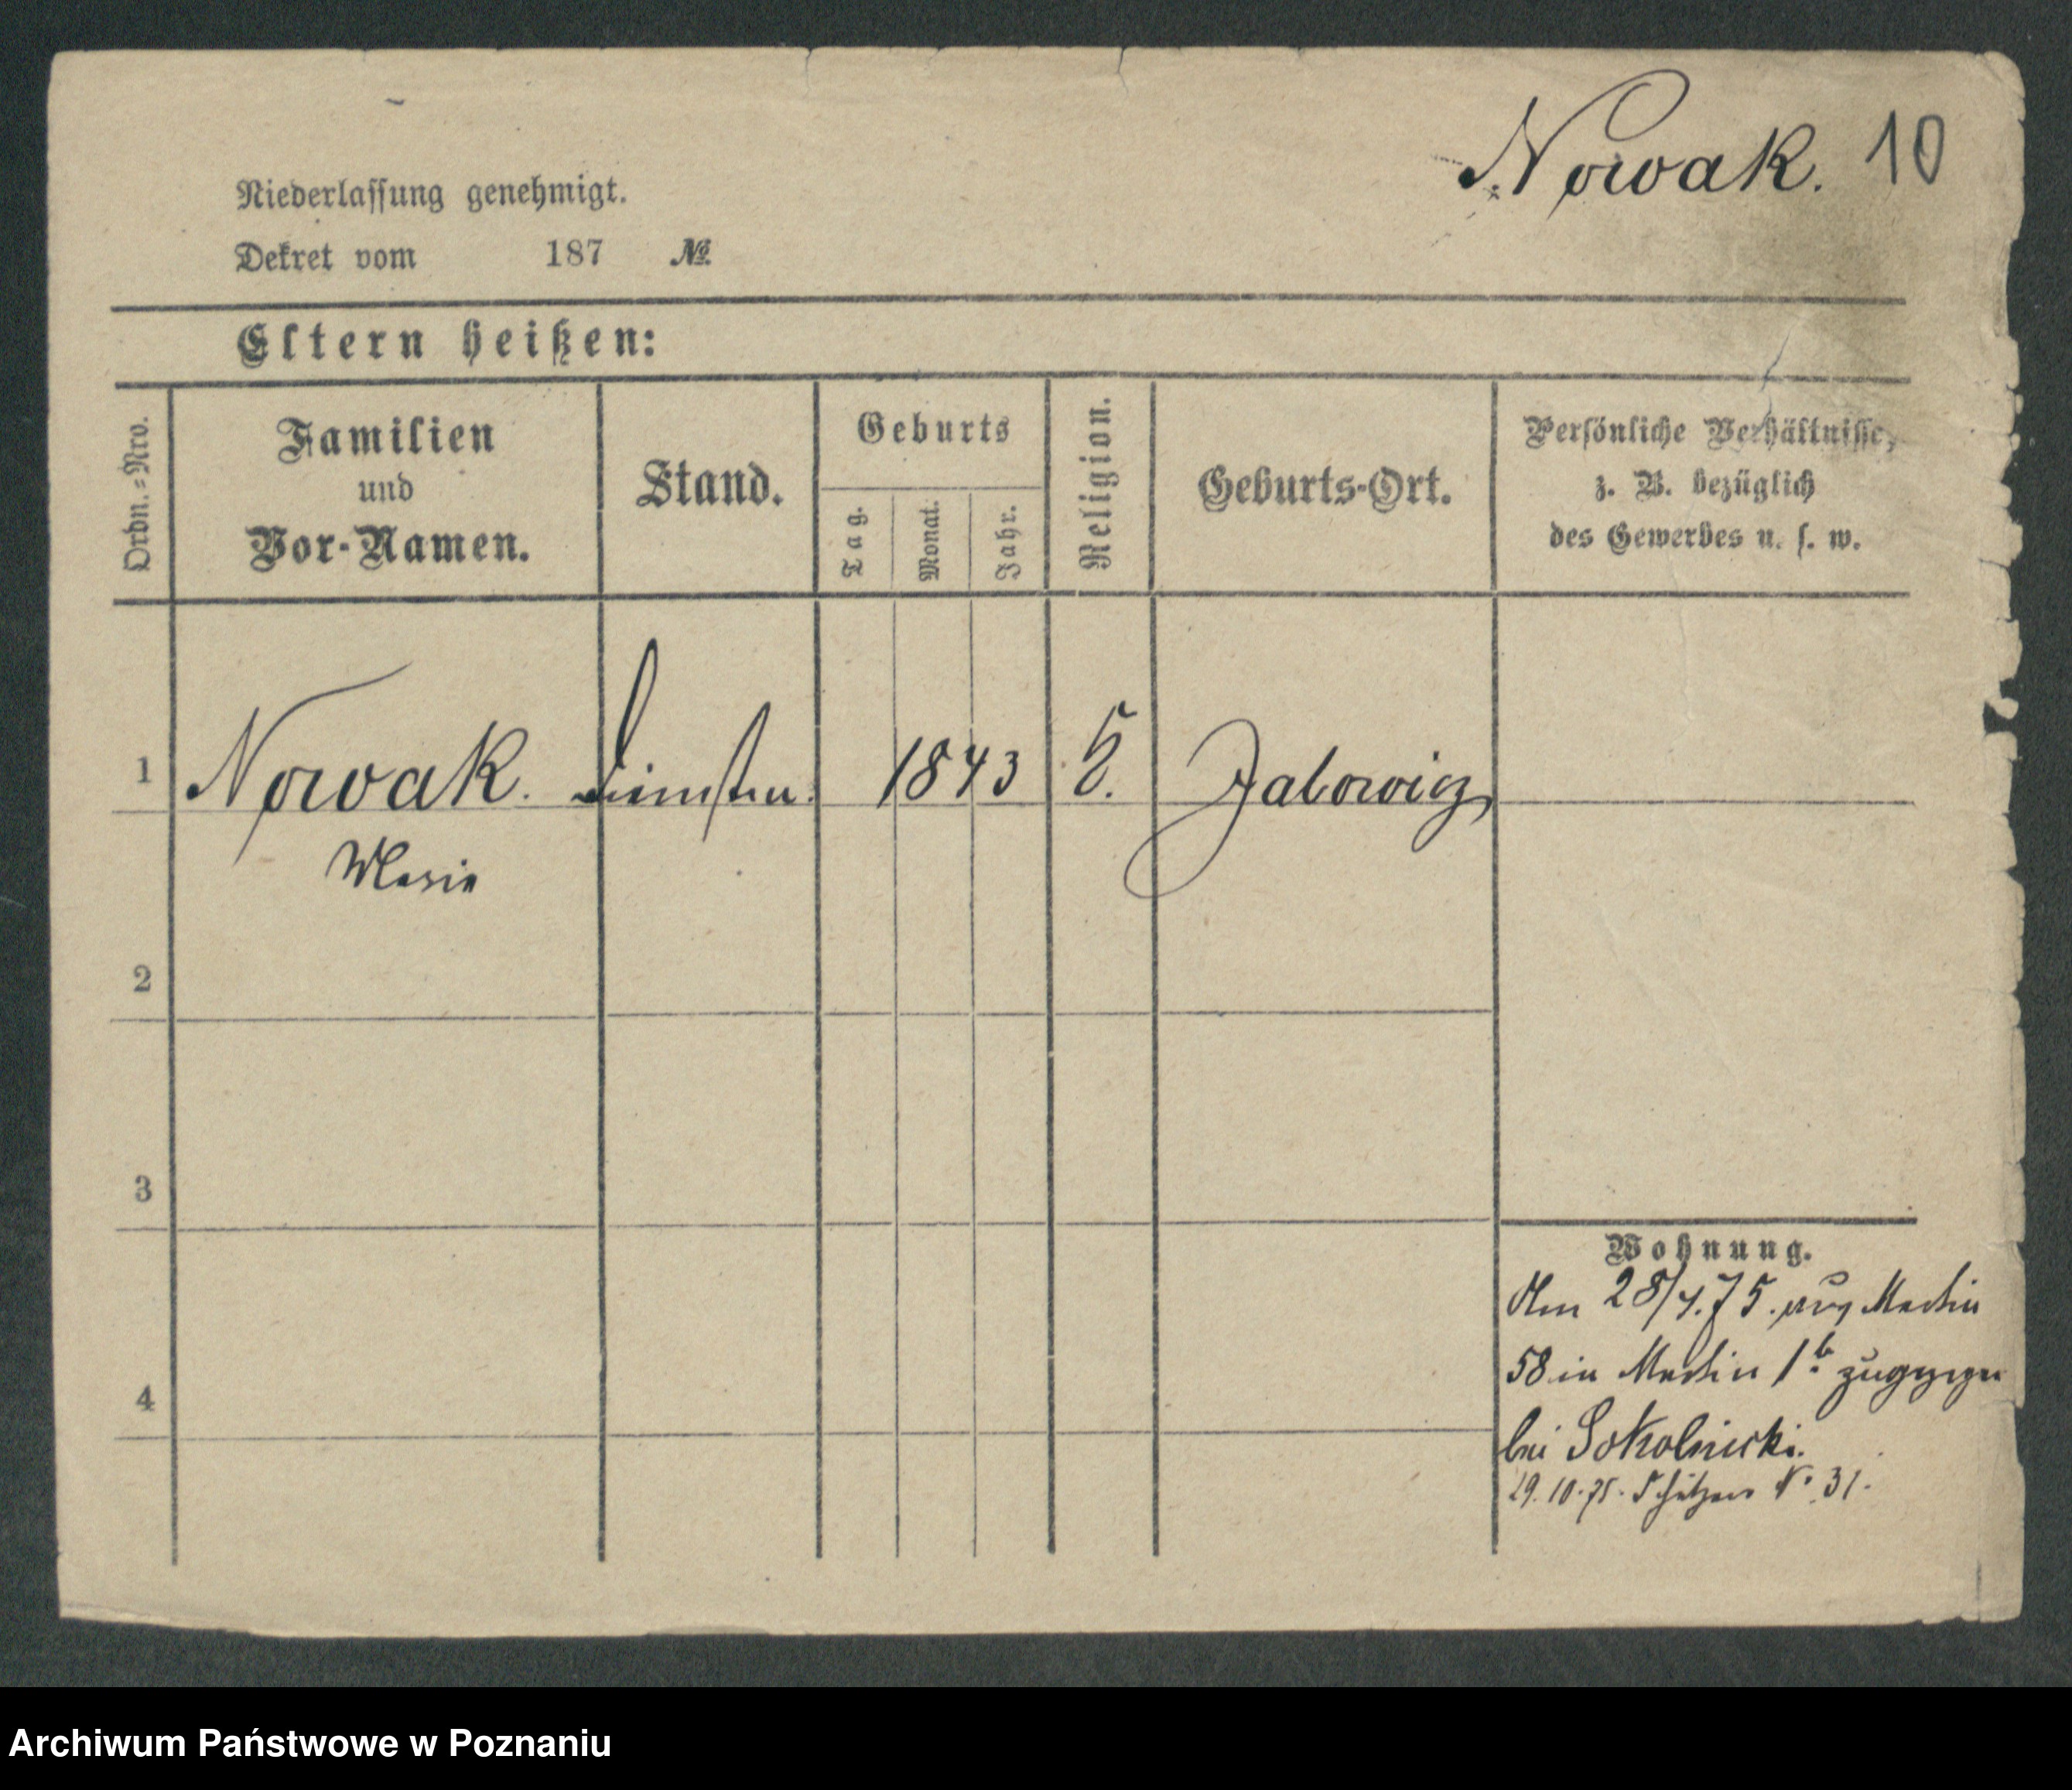 Nowak. 10
Niederlassung genehmigt.
Dekret vom 187 No.
Eltern heißen:
Ordn.=Nro.
Familien
und
Vor-Namen.
Stand.
Geburts
Tag.
Monat.
Jahr.
Religion.
Geburts-Ort.
Persönliche Verhältnisse,
z. B. bezüglich
des Gewerbes u. s. w.
1 Nowak. 1843 Jalowicz
Marie
2
3
4
Wohnung.
Am 28/4.75. aus Martin
58 in Martin 1b zugezogen
bei Sokolnicki.
29.10.75. Schützen No. 31.
Archiwum Państwowe w Poznaniu